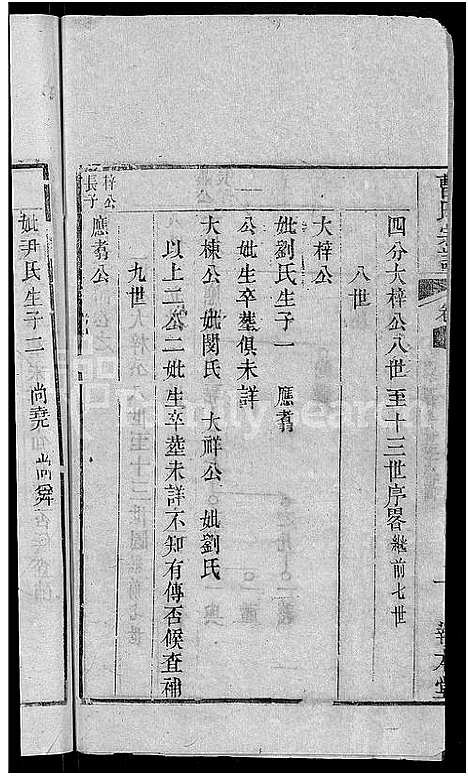 曹氏宗譜
卷
一
報本堂
四分大梓公八世至十三世序畧繼前七世
八世
大梓公
妣劉氏生子一 應耈
公妣生卒塟俱未詳
大棟公 妣閔氏 大祥公 妣劉氏
以上二公二妣生卒塟未詳不知有傳否候查補
九世
梓公長子 應耈公
妣尹氏生子二 尚堯 尚舜
FamilySearch